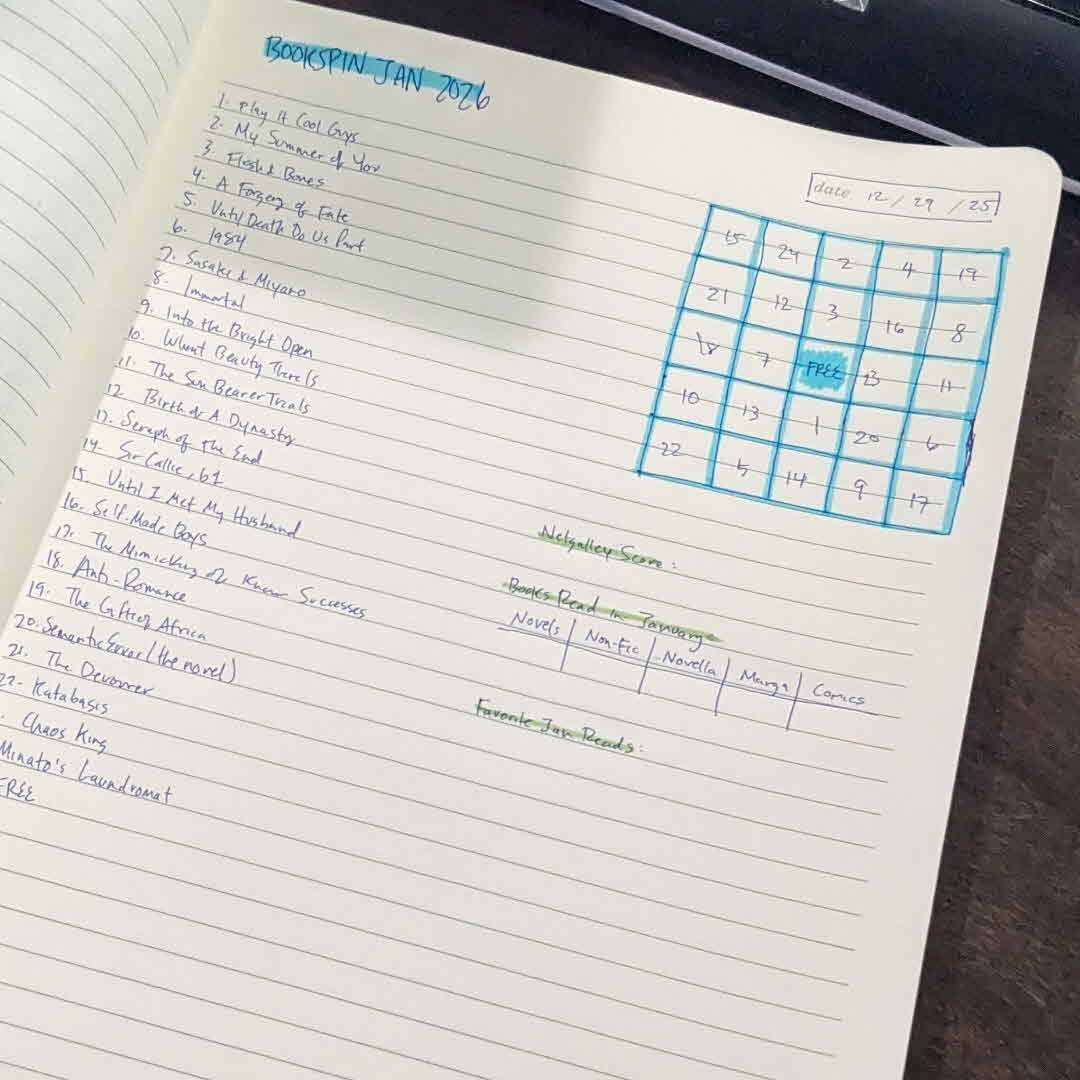 BOOKSPIN JAN 2026
1. Play It Cool Guys
2. My Summer of You
3. Flesh & Bones
4. A Forgery of Fate
5. Until Death Do Us Part
6. 1984
7. Sasaki & Miyano
8. Immortal
9. Into the Bright Open
10. What Beauty There Is
11. The Sun Bearer Trials
12. Birth of A Dynasty
13. Seraph of the End
14. Sir Callie, b1
15. Until I Met My Husband
16. Self-Made Boys
17. The Mimicking of Known Successes
18. Anti-Romance
19. The Gifts of Africa
20. Semantic Error (the novel)
21. The Devourer
22. Katabasis
. Chaos King
Minato's Laundromat
FREE
date 12 / 29 / 25
15 24 2 4 19
21 12 3 16 8
18 7 FREE 23 11
10 13 1 20 6
22 5 14 9 17
Netgalley Score:
Books Read in January
Novels Non-Fic Novella Manga Comics
Favorite Jan Reads: